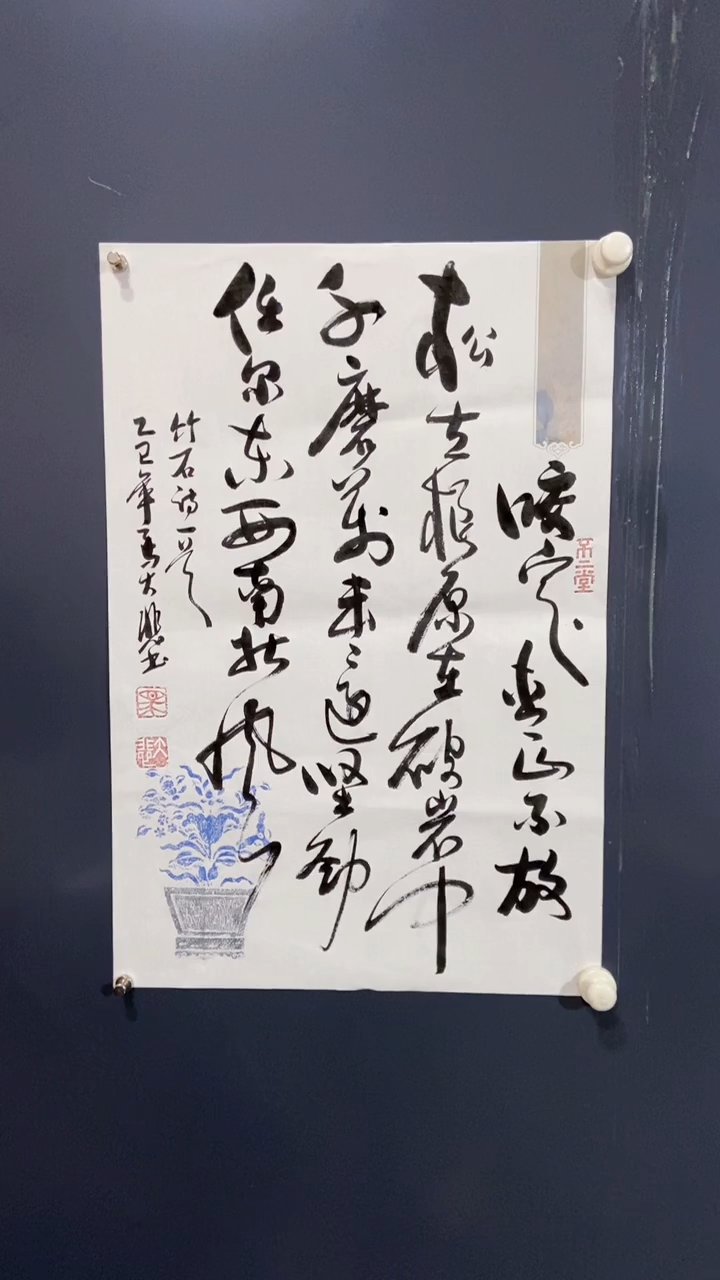 不二堂
咬定青山不放
松立根原在破岩中
千磨万击还坚劲
任尔东西南北风
竹石诗一首
乙巳年大悲书
大悲